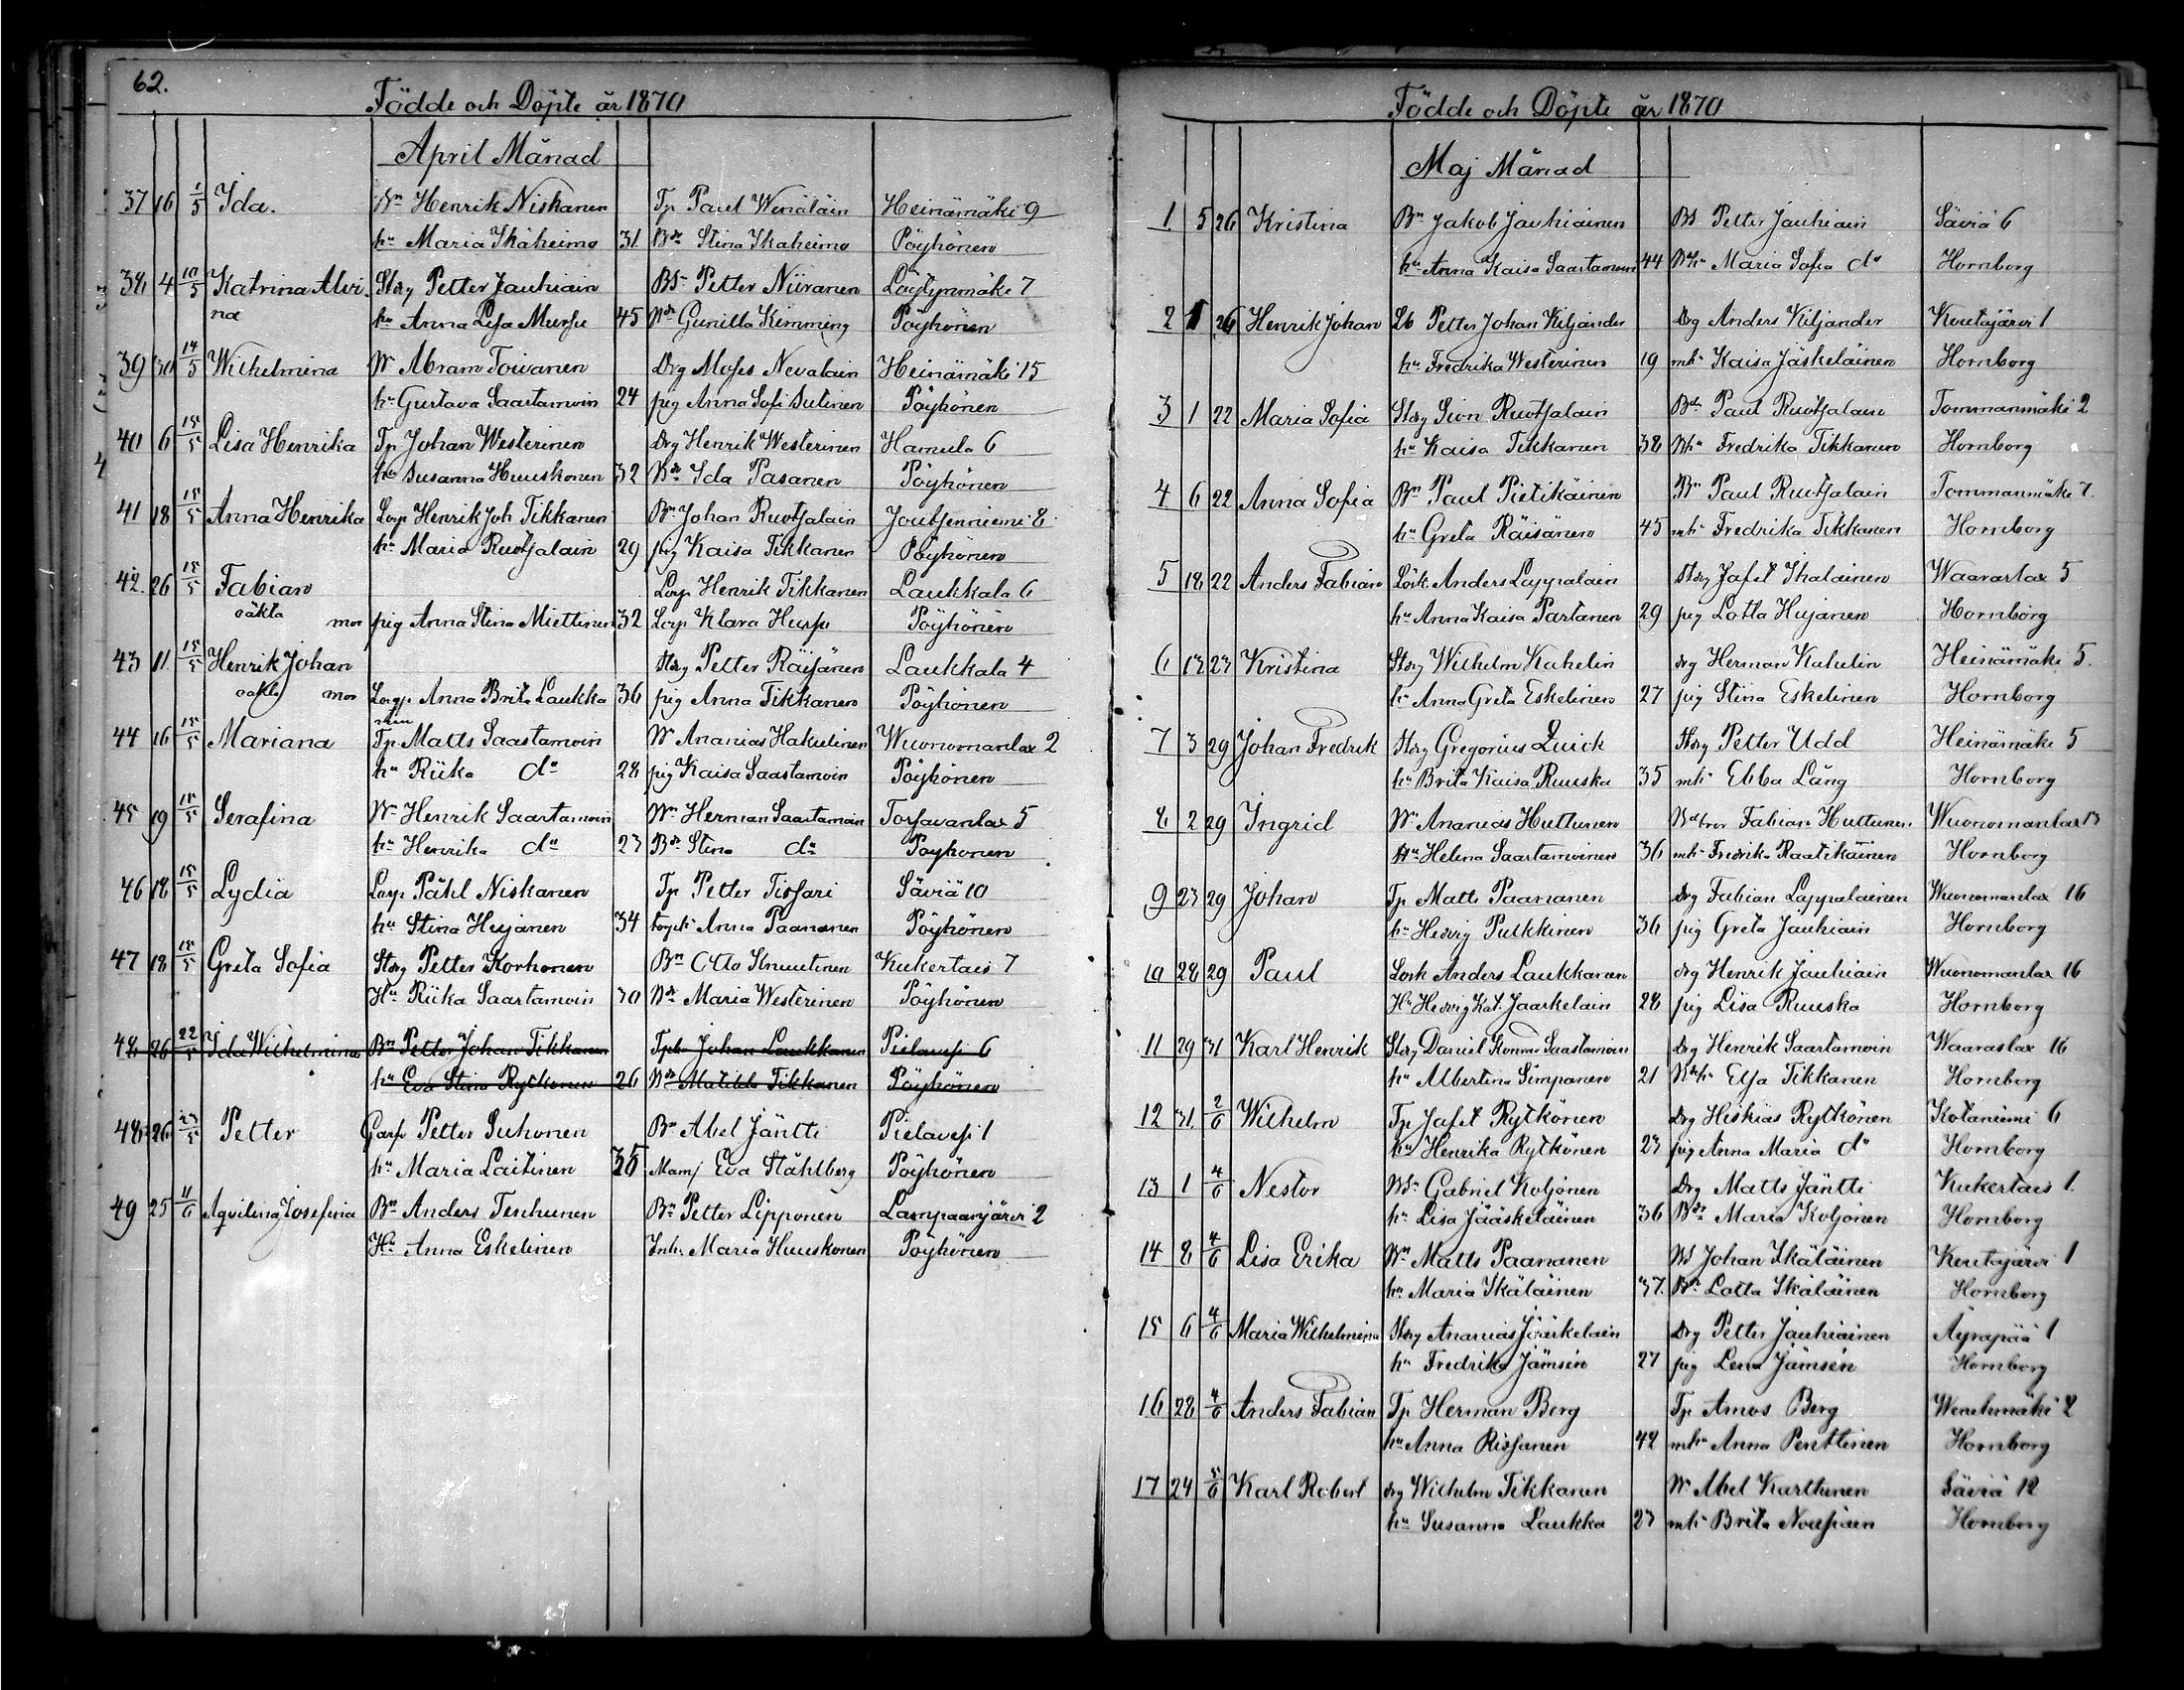 62.
Födde och Döpte år 1870
April Månad
37 16 1/5 Ida. Bn Henrik Niskanen Tp Paul Wenäläin Heinämäki 9
hu Maria Ikäheimo 31 Bdr Stina Ikaheimo Pöyhönen
38 4 10/5 Katrina Alvi- Storp Petter Jauhiain BSn Petter Niiranen Löytynmäki 7
na hu Anna Lisa Mursu 45 Bdr Gunilla Kimming Pöyhönen
39 30 14/5 Wilhelmina Bn Abram Toivanen Drg Moses Nevalain Heinämäki 15
hu Gustava Saastamoin 24 pig Anna Sofi Sutinen Pöyhönen
40 6 15/5 Lisa Henrika Tp Johan Westerinen Drg Henrik Westerinen Hamula 6
hu Susanna Huuskonen 32 Bdr Ida Pasanen Pöyhönen
41 18 15/5 Anna Henrika Losp Henrik Joh Tikkanen Bn Johan Ruotsalain Joutsenniemi 8
hu Maria Ruotsalain 29 pig Kaisa Tikkanen Pöyhönen
42 26 15/5 Fabian Losp Henrik Tikkanen Laukkala 6
oäkta mor pig Anna Stina Miettinen 32 Losp Klara Hurs Pöyhönen
43 11 15/5 Henrik Johan Storp Petter Räisänen Laukkala 4
oäkta mor Losp Anna Brita Laukka 36 pig Anna Tikkanen Pöyhönen
nen
44 16 15/5 Mariana Tp Matts Saastamoin Bn Ananias Hakulinen Wuonomanlax 2
hu Riika do 28 pig Kaisa Saastamoin Pöyhönen
45 19 15/5 Serafina Bn Henrik Saastamoin Bn Herman Saastamoin Torsavanlax 5
hu Henrika do 23 Bdr Stina do Pöyhonen
46 18 15/5 Lydia Losp Påhl Niskanen Tp Petter Tissari Säviä 10
hu Stina Hujanen 34 Anna Paananen Pöyhönen
47 18 15/5 Greta Sofia Storp Petter Korhonen Bn Otto Knuutinen Kukertais 7
Hu Riika Saastamoin 30 Bdr Maria Westerinen Pöyhönen
48 26 22/5 Ida Wilhelmina Bn Petter Johan Tikkanen Johan Laukkanen Pielavesi 6
hu Eva Stina Rytkonen 26 Bdr Matilda Tikkanen Pöyhönen
48 26 23/5 Petter Garfv Petter Suhonen Bn Abel Jäntti Pielavesi 1
hu Maria Laitinen 35 Mamj Eva Ståhlberg Pöyhönen
49 25 11/6 Aqvilina Josefina Bn Anders Tenhunen Bn Petter Lipponen Lampaanjärvi 2
Hu Anna Eskelinen Inh. Maria Huuskonen Pöyhönen
Födde och Döpte år 1870
Maj Månad
1 5 26 Kristina Bn Jakob Jauhiainen BS Petter Jauhiain Säviä 6
hu Anna Kaisa Saastamoin 44 Bhu Maria Sofia do Hornborg
2 1 26 Henrik Johan Lb Petter Johan Kiljander Drg Anders Kiljander Koutajärvi 1
hu Fredrika Westerinen 19 mh Kaisa Jäskeläinen Hornborg
3 1 22 Maria Sofia Storp Sion Ruotsalain Bn Paul Ruotsalain Tommanmäki 2
hu Kaisa Tikkanen 38 Bhu Fredrika Tikkanen Hornborg
4 6 22 Anna Sofia Bn Paul Pietikäinen Bn Paul Ruotsalain Tommanmäki 7.
hu Greta Räisänen 45 mh Fredrika Tikkanen Hornborg
5 18 22 Anders Fabian Lösk Anders Lappalain Storp Jafet Ikalainen Waaraslax 5
hu Anna Kaisa Partanen 29 pig Lotta Hujanen Hornborg
6 13 23 Kristina Storp Wilhelm Kahelin drg Herman Kahelin Heinämäki 5.
hu Anna Greta Eskelinen 27 pig Stina Eskelinen Hornborg
7 3 29 Johan Fredrik Storp Gregorius Quick Storp Petter Udd Heinämäki 5
hu Brita Kaisa Ruuska 35 mh Ebba Lång Hornborg
8 2 29 Ingrid Bn Ananias Huttunen Fabian Huttunen Wuonomanlax 13
Hu Helena Saastamoinen 36 mh Fredrika Raatikäinen Hornborg
9 23 29 Johan Tp Matts Paananen drg Fabian Lappalainen Wuonomanlax 16
hu Hedvig Pulkkinen 36 pig Greta Jauhiain Hornborg
10 28 29 Paul Losk Anders Laukkanen drg Henrik Jauhiain Wuonomanlax 16
Hu Hedvig Kat. Jaaskelain 28 pig Lisa Ruuska Hornborg
11 29 31 Karl Henrik Storp Daniel Konrad Saastamoin drg Henrik Saastamoin Waaraslax 16
hu Albertina Simpanen 21 Bhu Elsa Tikkanen Hornborg
12 31 2/6 Wilhelm Tp Jafet Rytkönen Drg Hiskias Rytkönen Kotaniemi 6
hu Henrika Rytkönen 23 pig Anna Maria do Hornborg
13 1 4/6 Nestor BSn Gabriel Koljonen Drg Matts Jäntti Kukertais 1.
hu Lisa Jääskeläinen 36 Bdr Maria Koljonen Hornborg
14 8 4/6 Lisa Erika Bn Matts Paananen BS Johan Ikäläinen Koutajärvi 1
hu Maria Ikäläinen 37. Bdr Lotta Ikäläinen Hornborg
15 6 4/6 Maria Wilhelmina Storp Ananias Jääskelain Drg Petter Jauhiainen Äyräpää 1
hu Fredrika Jämsén 27 pig Lena Jämsén Hornborg
16 28 4/6 Anders Fabian Tp Herman Berg Tp Amos Berg Wenehmäki 2
hu Anna Rissanen 42 mh Anna Penttinen Hornborg
17 24 5/6 Karl Robert drg Wilhelm Tikkanen Bn Abel Karttunen Säviä 12
hu Susanna Laukka 27 mh Brita Nousiain Hornborg